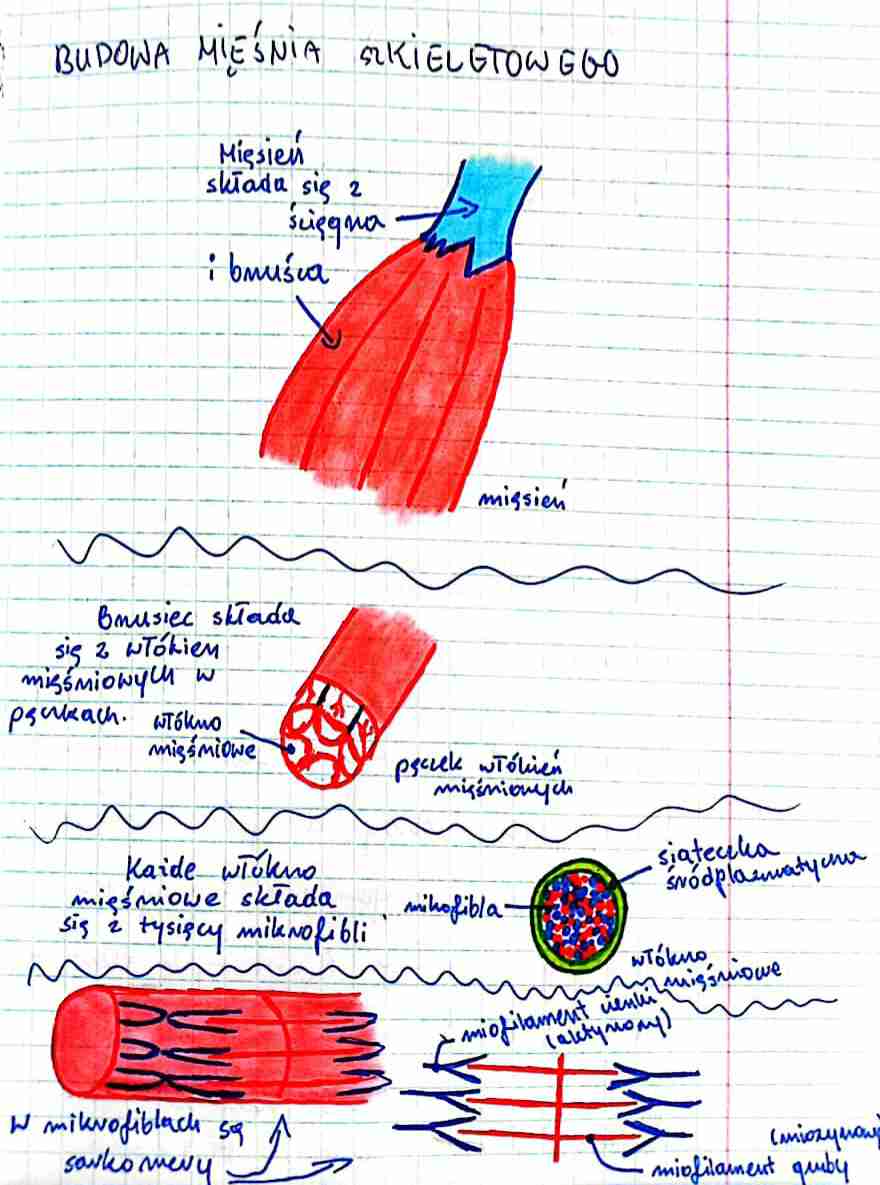 BUDOWA MIĘŚNIA SZKIELETOWEGO
Mięsień
składa się z
ścięgna
i bnuśca
mięsień
Bnusiec składa
się z włókien
mięśniowych w
pęczkach.
włókno
mięśniowe
pęczek włókien
mięśniowych
Każde włókno
mięśniowe składa
się z tysięcy miknofibli
mikofibla
siateczka
śródplazmatyczna
włókno
mięśniowe
miofilament cienki
(aktynowy)
W miknofiblach są
sarkomery
(miozynowy)
miofilament gruby